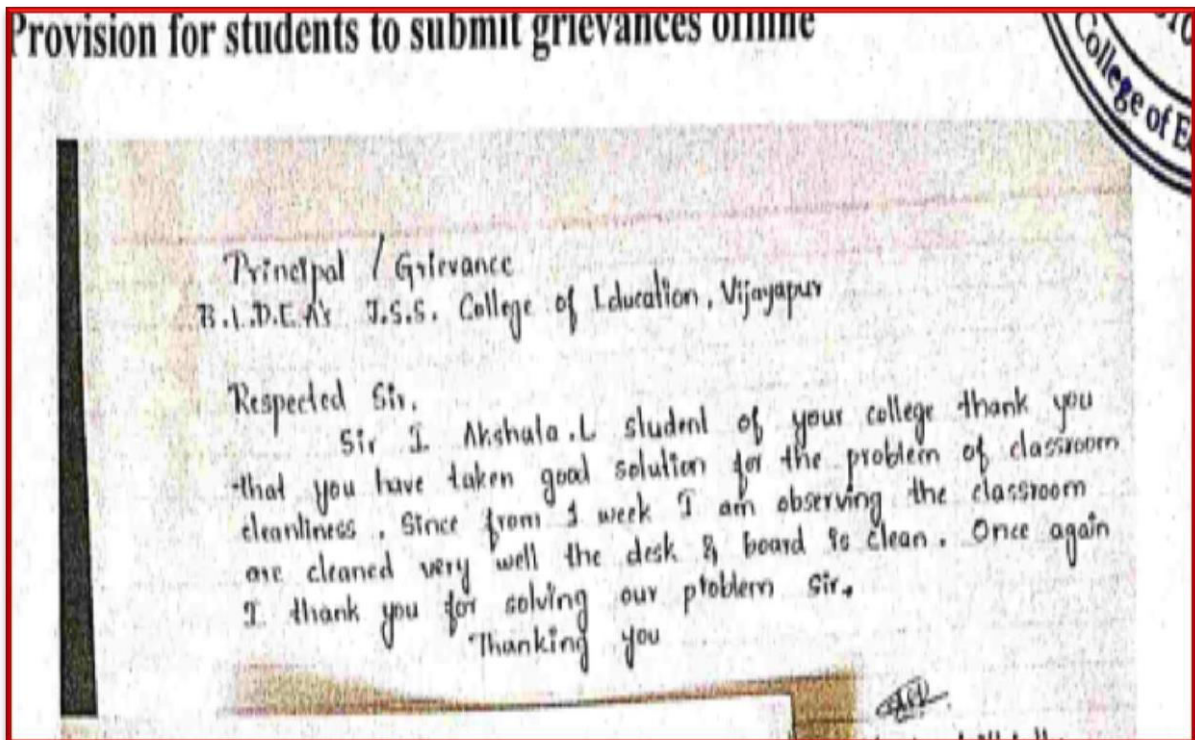 Provision for students to submit grievances offline
College of E
Principal / Grievance
B.L.D.E.A's J.S.S. College of Education, Vijayapur
Respected Sir.
Sir I Akshala.L student of your college thank you
that you have taken good solution for the problem of classroom
cleanliness, since from 1 week I am observing the classroom
are cleaned very well the desk & board is clean. Once again
I thank you for solving our problem Sir.
Thanking you